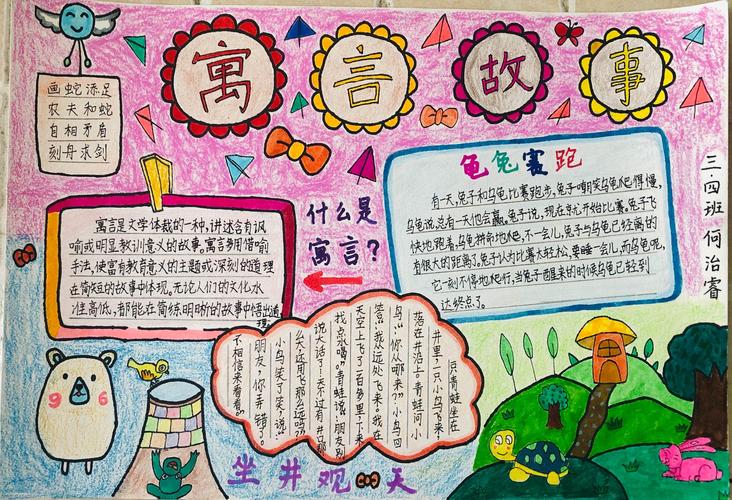 寓言故事
画蛇添足
农夫和蛇
自相矛盾
刻舟求剑
龟兔赛跑
有一天,兔子和乌龟比赛跑步,兔子嘲笑乌龟爬得慢,
乌龟说,总有一天他会赢。兔子说,现在就开始比赛。兔子飞
快地跑着,乌龟拼命地爬,不一会儿,兔子与乌龟已经离的
有很大的距离了。兔子认为比赛太轻松,要睡一会儿,而乌龟呢,
它一刻不停地爬行,当兔子醒来的时候乌龟已经到
达终点了。
三.四班 何治睿
什么是
寓言?
寓言是文学体裁的一种,讲述含有讽
喻或明显教训意义的故事。寓言多用借喻
手法,使富有教育意义的主题或深刻的道理
在简短的故事中体现,无论人们的文化水
准高低,都能在简练明晰的故事中悟出道
理。
一只青蛙坐在
井里,一只小鸟飞来,
落在井沿上。青蛙问小
鸟:“你从哪来?”小鸟回
答:“我从远处飞来。我在
天空上飞了一百多里,下来
找点水喝。”青蛙说:“朋友,别
说大话了!天不过有井口那
么大,还用飞那么远吗?”
小鸟笑了笑,说:“
朋友,你弄错了。
不相信来看看。”
坐井观天
9 6